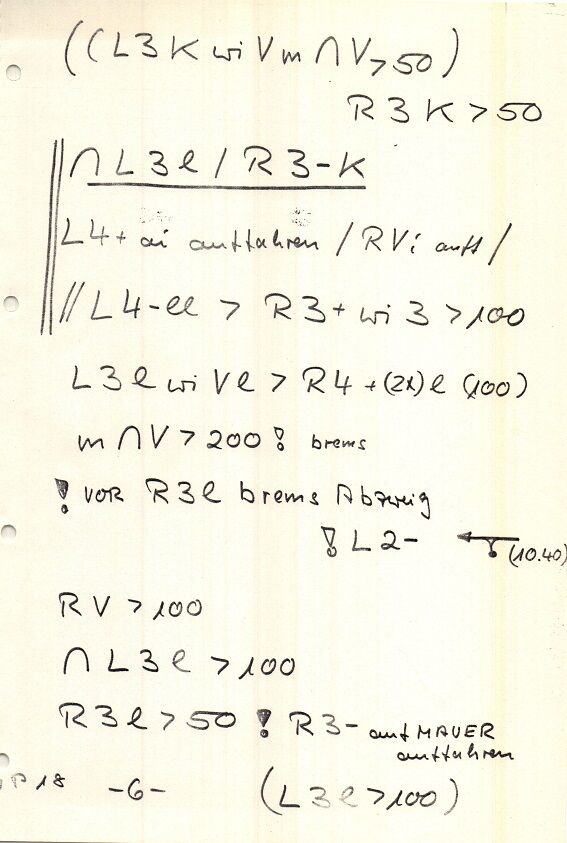 ((L3K wi Vm ∩ V > 50)
R3K > 50
∩ L3l / R3-K
L4+ ai auffahren / RVi auff /
// L4-ll > R3+ wi 3 > 100
L3l wi Vl > R4+(2x)l (100)
m ∩ V > 200 ! brems
! VOR R3l brems Abzweig
! L2- (10.40)
RV > 100
∩ L3l > 100
R3l > 50 ! R3- auf MAUER
auffahren
P 18 -6- (L3l > 100)